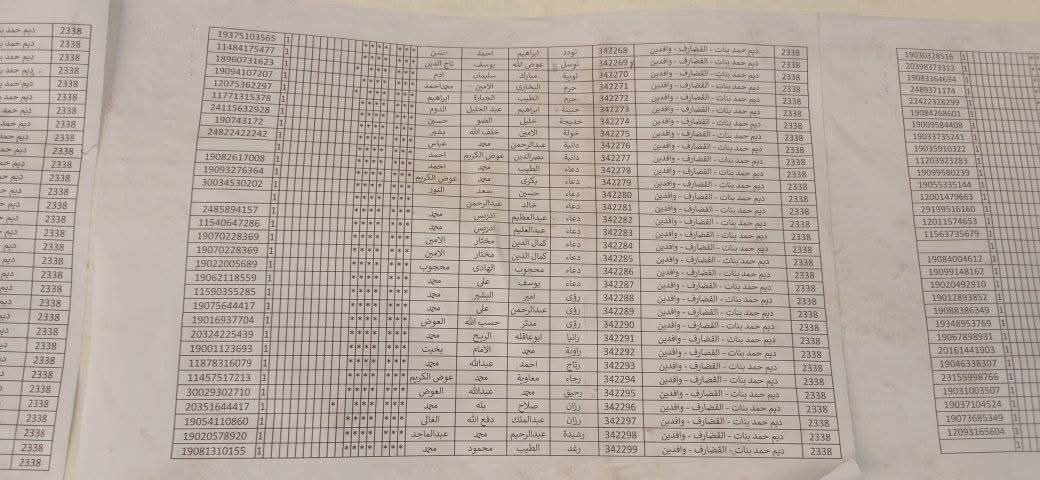 19030328516 1
20398373313 1
19083364694 1
2489371174 1
22422328299 1
19084268601 1
19009584408 1
19033735241 1
19035910322 1
11203923283 1
19099580239 1
19055335144 1
12001479663 1
29199516160 1
12011574653 1
11563735679 1
1
19084004612 1
19099148162 1
19020492910 1
19012893852 1
19088386349 1
19348953769 1
19067898931 1
20161441903 1
19046338307 1
23155998766 1
19031003507 1
19037104524 1
19073685349 1
12093165604 1
1
2338 ديم حمد بنات - القضارف - وافدين 342268 تودد ابراهيم احمد حسن *** **** 1 19375103565
2338 ديم حمد بنات - القضارف - وافدين 342269 توسل عوض الله يوسف تاج الدين *** **** 1 11484175477
2338 ديم حمد بنات - القضارف - وافدين 342270 ثويبة مبارك سليمان ادم *** **** 1 18960731623
2338 ديم حمد بنات - القضارف - وافدين 342271 حرم البخارى الامين محمداحمد *** **** 1 19094107207
2338 ديم حمد بنات - القضارف - وافدين 342272 حرم الطيب الجنيد ابراهيم *** **** 1 12075362297
2338 ديم حمد بنات - القضارف - وافدين 342273 حسنة ابراهيم عبد الجليل الدوم *** **** 1 11771315378
2338 ديم حمد بنات - القضارف - وافدين 342274 خديجة خليل الضو حسين *** **** 1 24115632928
2338 ديم حمد بنات - القضارف - وافدين 342275 خولة الامين خلف الله بشير *** **** 1 190743172
2338 ديم حمد بنات - القضارف - وافدين 342276 دانية عبدالرحمن محمد عباس *** **** 1 24822422242
2338 ديم حمد بنات - القضارف - وافدين 342277 دانية نصرالدين عوض الكريم احمد *** **** 1
2338 ديم حمد بنات - القضارف - وافدين 342278 دعاء الطيب محمد احمد *** **** 1 19082617008
2338 ديم حمد بنات - القضارف - وافدين 342279 دعاء بكرى محمد عوض الكريم *** **** 1 19093276364
2338 ديم حمد بنات - القضارف - وافدين 342280 دعاء حسين سعد النور *** **** 1 30034530202
2338 ديم حمد بنات - القضارف - وافدين 342281 دعاء خالد عبدالرحمن *** **** 1
2338 ديم حمد بنات - القضارف - وافدين 342282 دعاء عبدالعظيم ادريس محمد *** **** 1 2485894157
2338 ديم حمد بنات - القضارف - وافدين 342283 دعاء عبدالعليم ادريس محمد *** **** 1 11540647286
2338 ديم حمد بنات - القضارف - وافدين 342284 دعاء كمال الدين مختار الامين *** **** 1 19070228369
2338 ديم حمد بنات - القضارف - وافدين 342285 دعاء كمال الدين مختار الامين *** **** 1 19070228369
2338 ديم حمد بنات - القضارف - وافدين 342286 دعاء محجوب الهادى محجوب *** **** 1 19022005689
2338 ديم حمد بنات - القضارف - وافدين 342287 دعاء يوسف على محمد *** **** 1 19062118559
2338 ديم حمد بنات - القضارف - وافدين 342288 رؤى امير البشير محمد *** **** 1 11590355285
2338 ديم حمد بنات - القضارف - وافدين 342289 رؤى عبدالرحمن على محمد *** **** 1 19075644417
2338 ديم حمد بنات - القضارف - وافدين 342290 رؤى مدثر حسب الله العوض *** **** 1 19016937704
2338 ديم حمد بنات - القضارف - وافدين 342291 رانيا ابوعاقله الريح محمد *** **** 1 20324225439
2338 ديم حمد بنات - القضارف - وافدين 342292 راوية محمد الامام بخيت *** **** 1 19001123693
2338 ديم حمد بنات - القضارف - وافدين 342293 رتاج احمد عبدالله محمد *** **** 1 11878316079
2338 ديم حمد بنات - القضارف - وافدين 342294 رجاء معاوية محمد عوض الكريم *** **** 1 11457517213
2338 ديم حمد بنات - القضارف - وافدين 342295 رحيق محمد عبدالله العوض *** **** 1 30029302710
2338 ديم حمد بنات - القضارف - وافدين 342296 رزان صلاح بله محمد *** *** * 1 20351644417
2338 ديم حمد بنات - القضارف - وافدين 342297 رزان عبدالملك دفع الله الغالى *** **** 1 19054110860
2338 ديم حمد بنات - القضارف - وافدين 342298 رشيدة عبدالرحيم محمد عبدالماجد *** **** 1 19020578920
2338 ديم حمد بنات - القضارف - وافدين 342299 رغد الطيب محمود محمد *** **** 1 19081310155
2338 ديم حمد
2338 ديم حمد
2338 ديم حمد
2338 ديم حمد
2338 ديم حمد
2338 ديم حمد
2338 ديم حمد
2338 ديم حمد
2338 ديم حمد
2338 ديم حمد
2338 ديم حمد
2338 ديم حمد
2338 ديم حمد
2338 ديم حمد
2338 ديم حمد
2338 ديم حمد
2338 ديم حمد
2338 ديم حمد
2338 ديم
2338 ديم
2338 ديم
2338 ديم
2338 ديم
2338 ديم
2338 ديم
2338 ديم
2338
2338
2338
2338
2338
2338